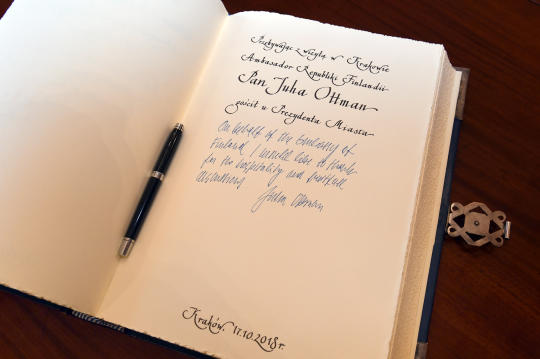 Przebywając z wizytą w Krakowie
Ambasador Republiki Finlandii
Pan Juha Ottman
gościł u Prezydenta Miasta
On behalf of the Embassy of
Finland I would like to thank
for the hospitality and fruitful
discussions Juha Ottman
Kraków, 17.10.2018r.